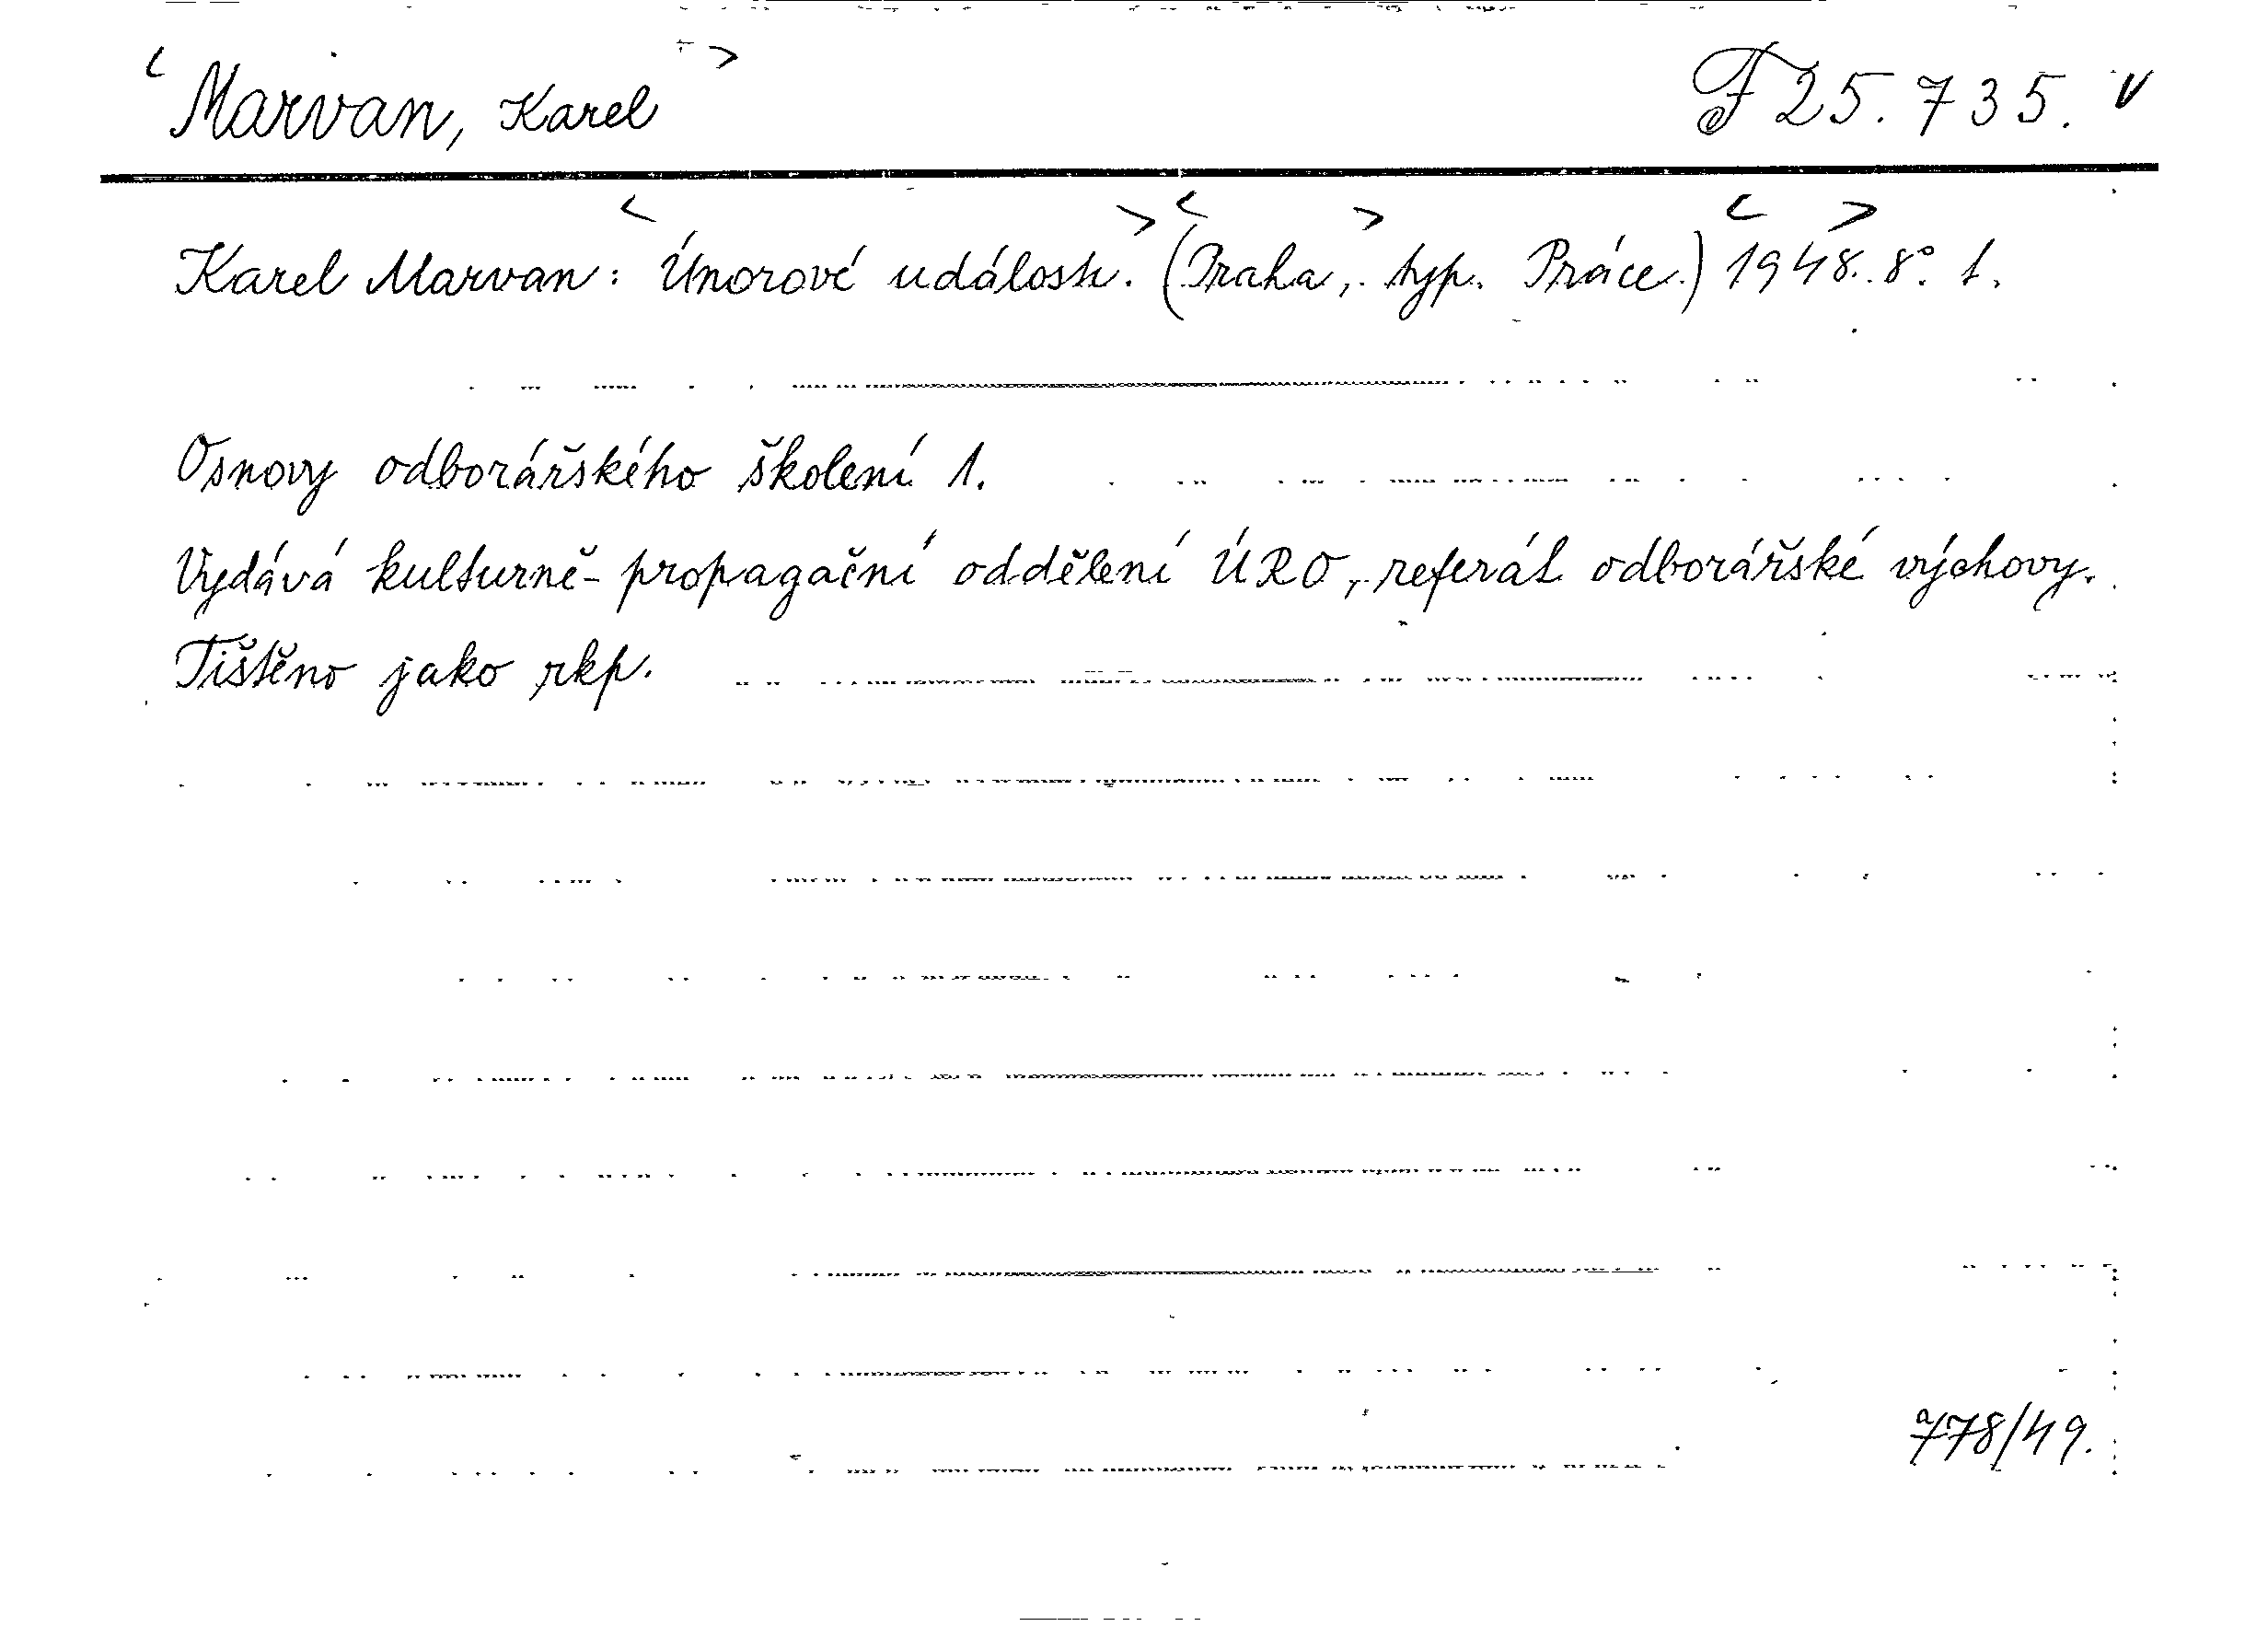 <Marvan, Karel> F 25.735. v
Karel Marvan: <Únorové události.> (<Praha,> typ. Práce.) <1948>. 8°. 1.
Osnovy odborářského školení 1.
Vydává kulturně-propagační oddělení ÚRO, referát odborářské výchovy.
Tištěno jako rkp.
a778/49.